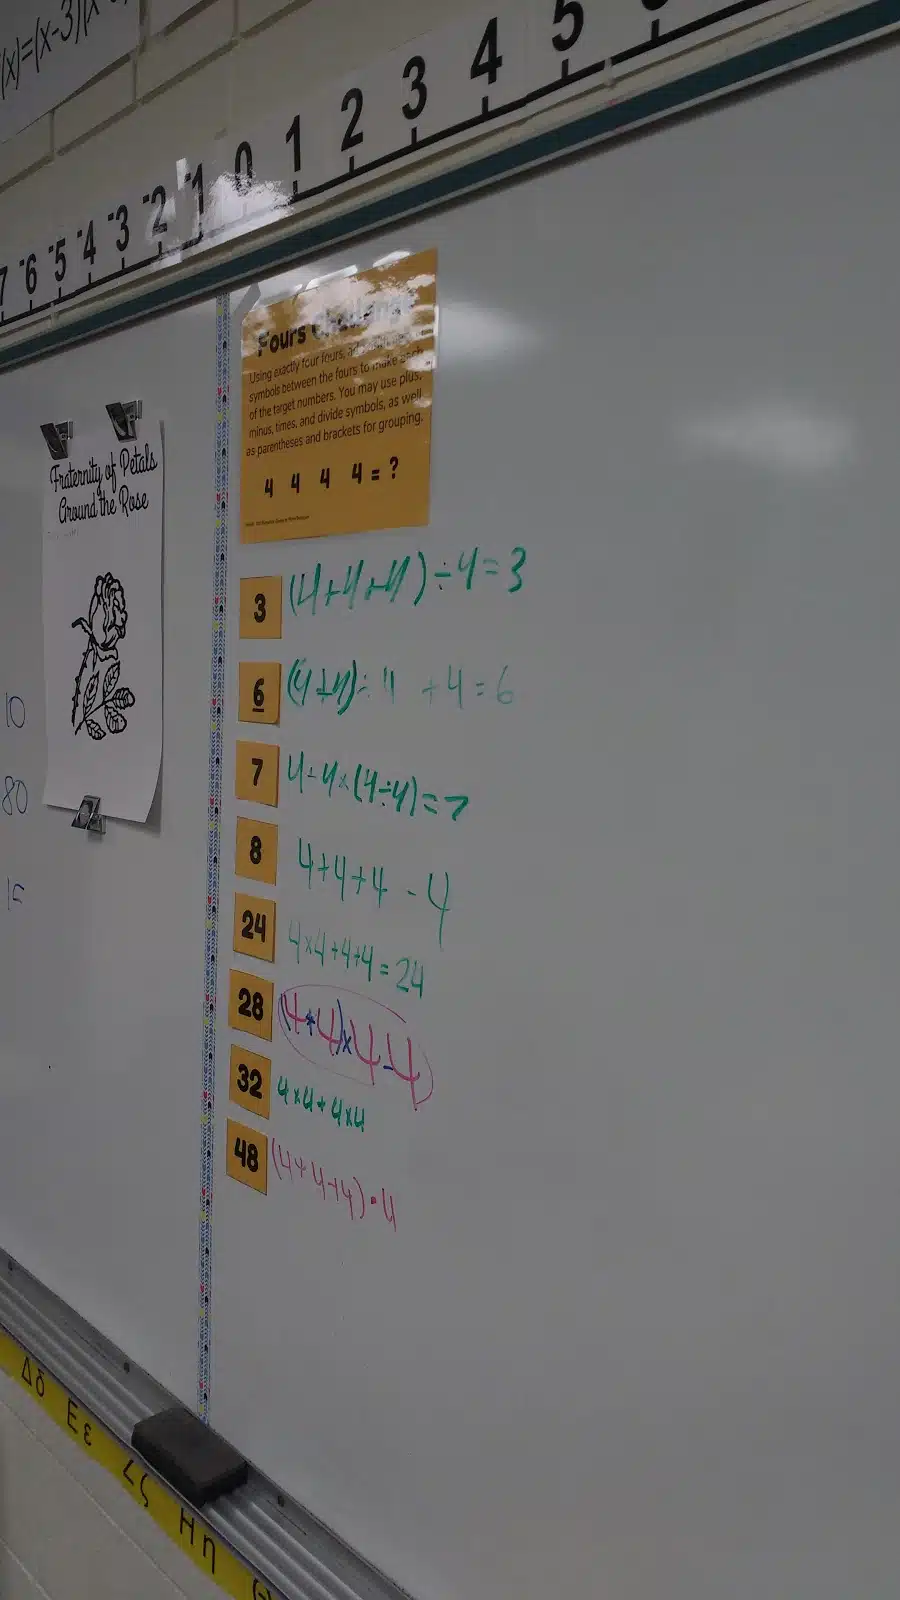 (x)=(x-3)(x
7 -6 -5 -4 -3 -2 -1 0 1 2 3 4 5
Fours Challenge
Using exactly four fours,
symbols between the fours to make each
of the target numbers. You may use plus,
minus, times, and divide symbols, as well
as parentheses and brackets for grouping.
4 4 4 4 = ?
Fraternity of Petals
Around the Rose
10
80
15
3 (4+4+4)÷4=3
6 (4+4)÷4 +4=6
7 4-4×(4÷4)=7
8 4+4+4-4
24 4×4+4+4=24
28 (4+4)×4-4
32 4×4+4×4
48 (4+4+4)•4
Δδ Εε Ζζ Ηη